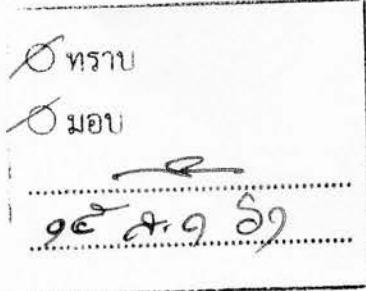 ทราบ
มอบ
๑๕ ส.ค ๖๑